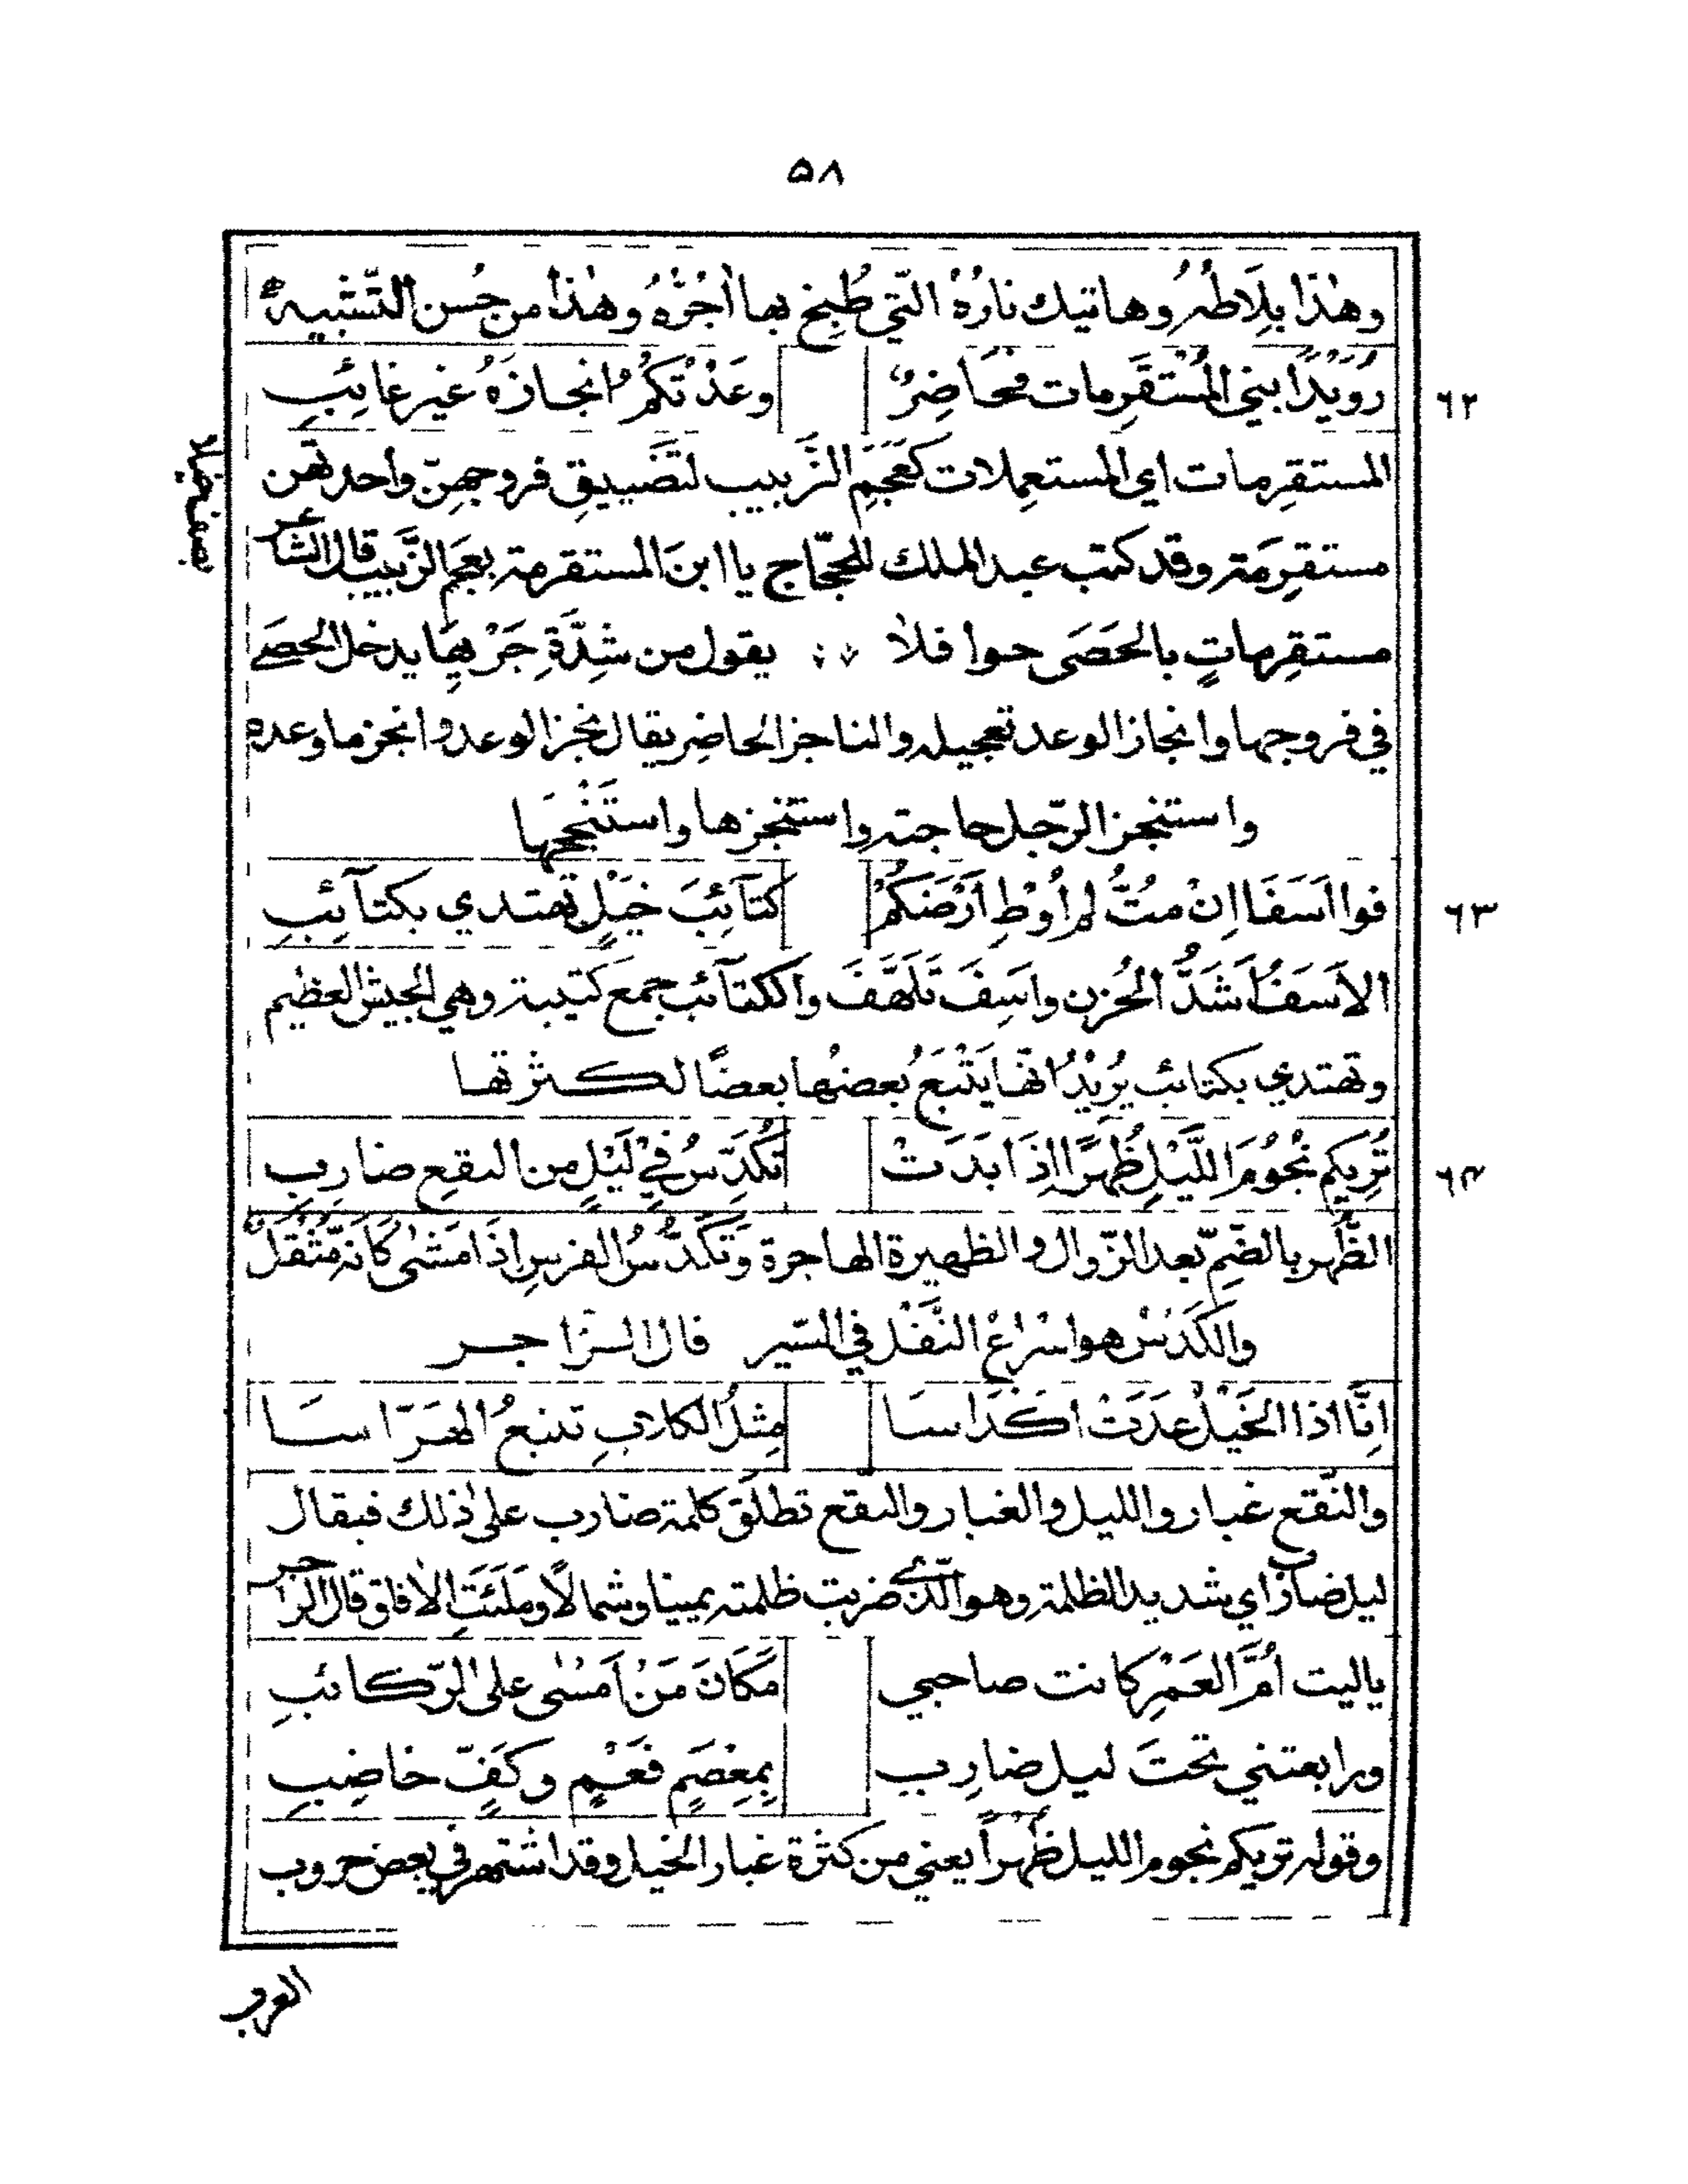 ٥٨
وهٰذا بِلَاطُہٗ وهاتيك نارُهُ التّي طُبِخ بها اٰجُرُّهُ وهٰذا من حُسن التّشبيہ
٦٢ رُوَيْدًا بني المُسْتَقْرِمات فحَاضِرٌ وعَدْتكُمُ انجازَهُ غير غائِبِ
المستقرِمات اي المستعمِلات كعَجَمِ الزَّبيب لتَضييقِ فروجهِنّ واحدتهن
مستقرِمَة وقد كتب عبد الملك للحجّاج يا ابنَ المستقرمة بعجَم الزّبيب قال الشاعر
يصف خيلا
مستقرِماتٍ بالحَصَى حوافلا يقول من شِدَّةِ جَرْيِهَا يدخل الحصى
في فروجها وانجاز الوعد تعجيله والناجز الحاضِر يقال نجز الوعد وانجز ما وعده
واستنجز الرّجل حاجته واستنجزها واستَنْجَحَها
٦٣ فوا اَسَفَا اِنْ مُتُّ لم اُوْطِ اَرْضَكُمْ كتآئِبَ خَيْلٍ تهتدي بكتآئِبِ
الاَسَفُ اَشَدُّ الحُزن واَسِفَ تَلَهَّفَ والكتآئب جمع كتيبة وهي الجيش العظيم
وتهتدي بكتائب يُرِيْدُ انّها يَتْبَعُ بعضُها بعضًا لكثرتها
٦٤ تُرِيكم نُجُومَ اللَّيْلِ ظُهرًا اِذَا بَدَتْ تُكَدِّسُ فِيْ لَيْلٍ من النقع ضارِبِ
الظُّهر بالضَمّ بعد الزّوال والظهيرة الهاجرة وَتَكَدُّسُ الفرسِ اِذَا مَشىٰ كَاَنَّه مُثْقَلٌ
والكَدَسْ هو اسْراعُ النَّقْل في السّير قال الرّاجـر
اِنَّا اذا الخَيْلُ عَدَتْ اكْدَاسَا مِثلُ الكلابِ تتبعُ الهَرّاسَا
والنّقع غبار والليل والغبار والنقع تطلَق كلمة ضارب على ذلك فيقال
ليل ضارب اي شديد الظلمة وهو الّذى ضربت ظلمته يمينا وشمالًا ومَلَئَتِ الاٰفاق قال الراجز
ياليت اُمَّ العَمْرِ كانت صاحبي مَكَانَ مَنْ اَمْسٰى على الرّكائبِ
ورابعتني تحتَ ليل ضارِب بِمِعْصَمٍ فَعْمٍ وكَفٍّ خاضِبِ
وقوله تريكم نجوم الليل ظُهرًا يعني من كثرة غبار الخيل وقد اشتهر في بعض حروب
العرب